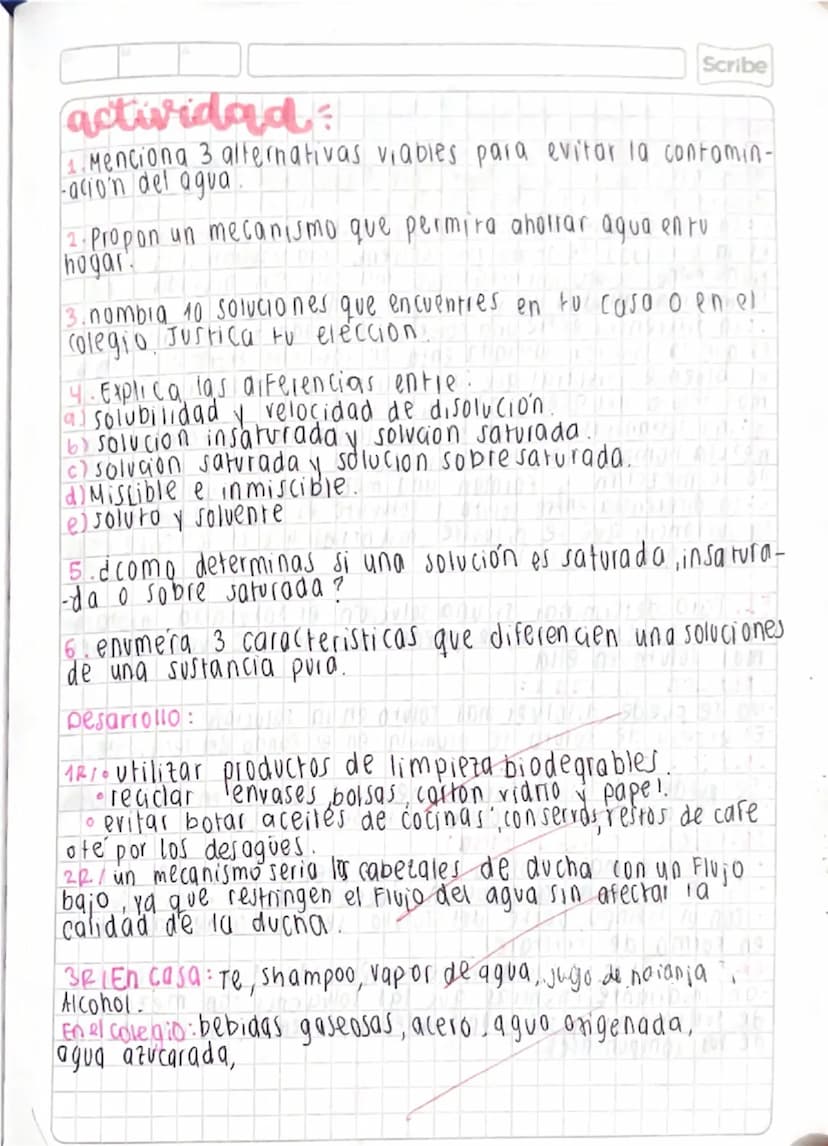 Scribe
actividad:
1. Menciona 3 alternativas viables para evitar la contamin-
-ación del agua.
2. Propon un mecanismo que permita ahorrar agua en tu
hogar.
3. nombra 10 soluciones que encuentres en tu casa o en el
colegio. Justica tu elección.
4. Explica las diferencias entre:
a) solubilidad y velocidad de disolución.
b) solución insaturada y solución saturada.
c) solución saturada y solución sobresaturada.
d) Miscible e inmiscible.
e) soluto y solvente
5. ¿como determinas si una solución es saturada, insatura-
-da o sobre saturada?
6. enumera 3 caracteristicas que diferencien una soluciones
de una sustancia pura.
Desarrollo:
1R/• utilizar productos de limpieza biodegrables.
• reciclar envases, bolsas, carton vidrio y papel.
• evitar botar aceites de cocinas, conservas, restos de cafe
o té por los desagües.
2R/ un mecanismo seria los cabezales de ducha con un Flujo
bajo, ya que restringen el Flujo del agua sin afectar la
calidad de la ducha.
3R/ En casa: Te, shampoo, vapor de agua, jugo de naranja,
Alcohol.
En el colegio: bebidas gaseosas, acero, agua oxigenada,
agua azucarada,